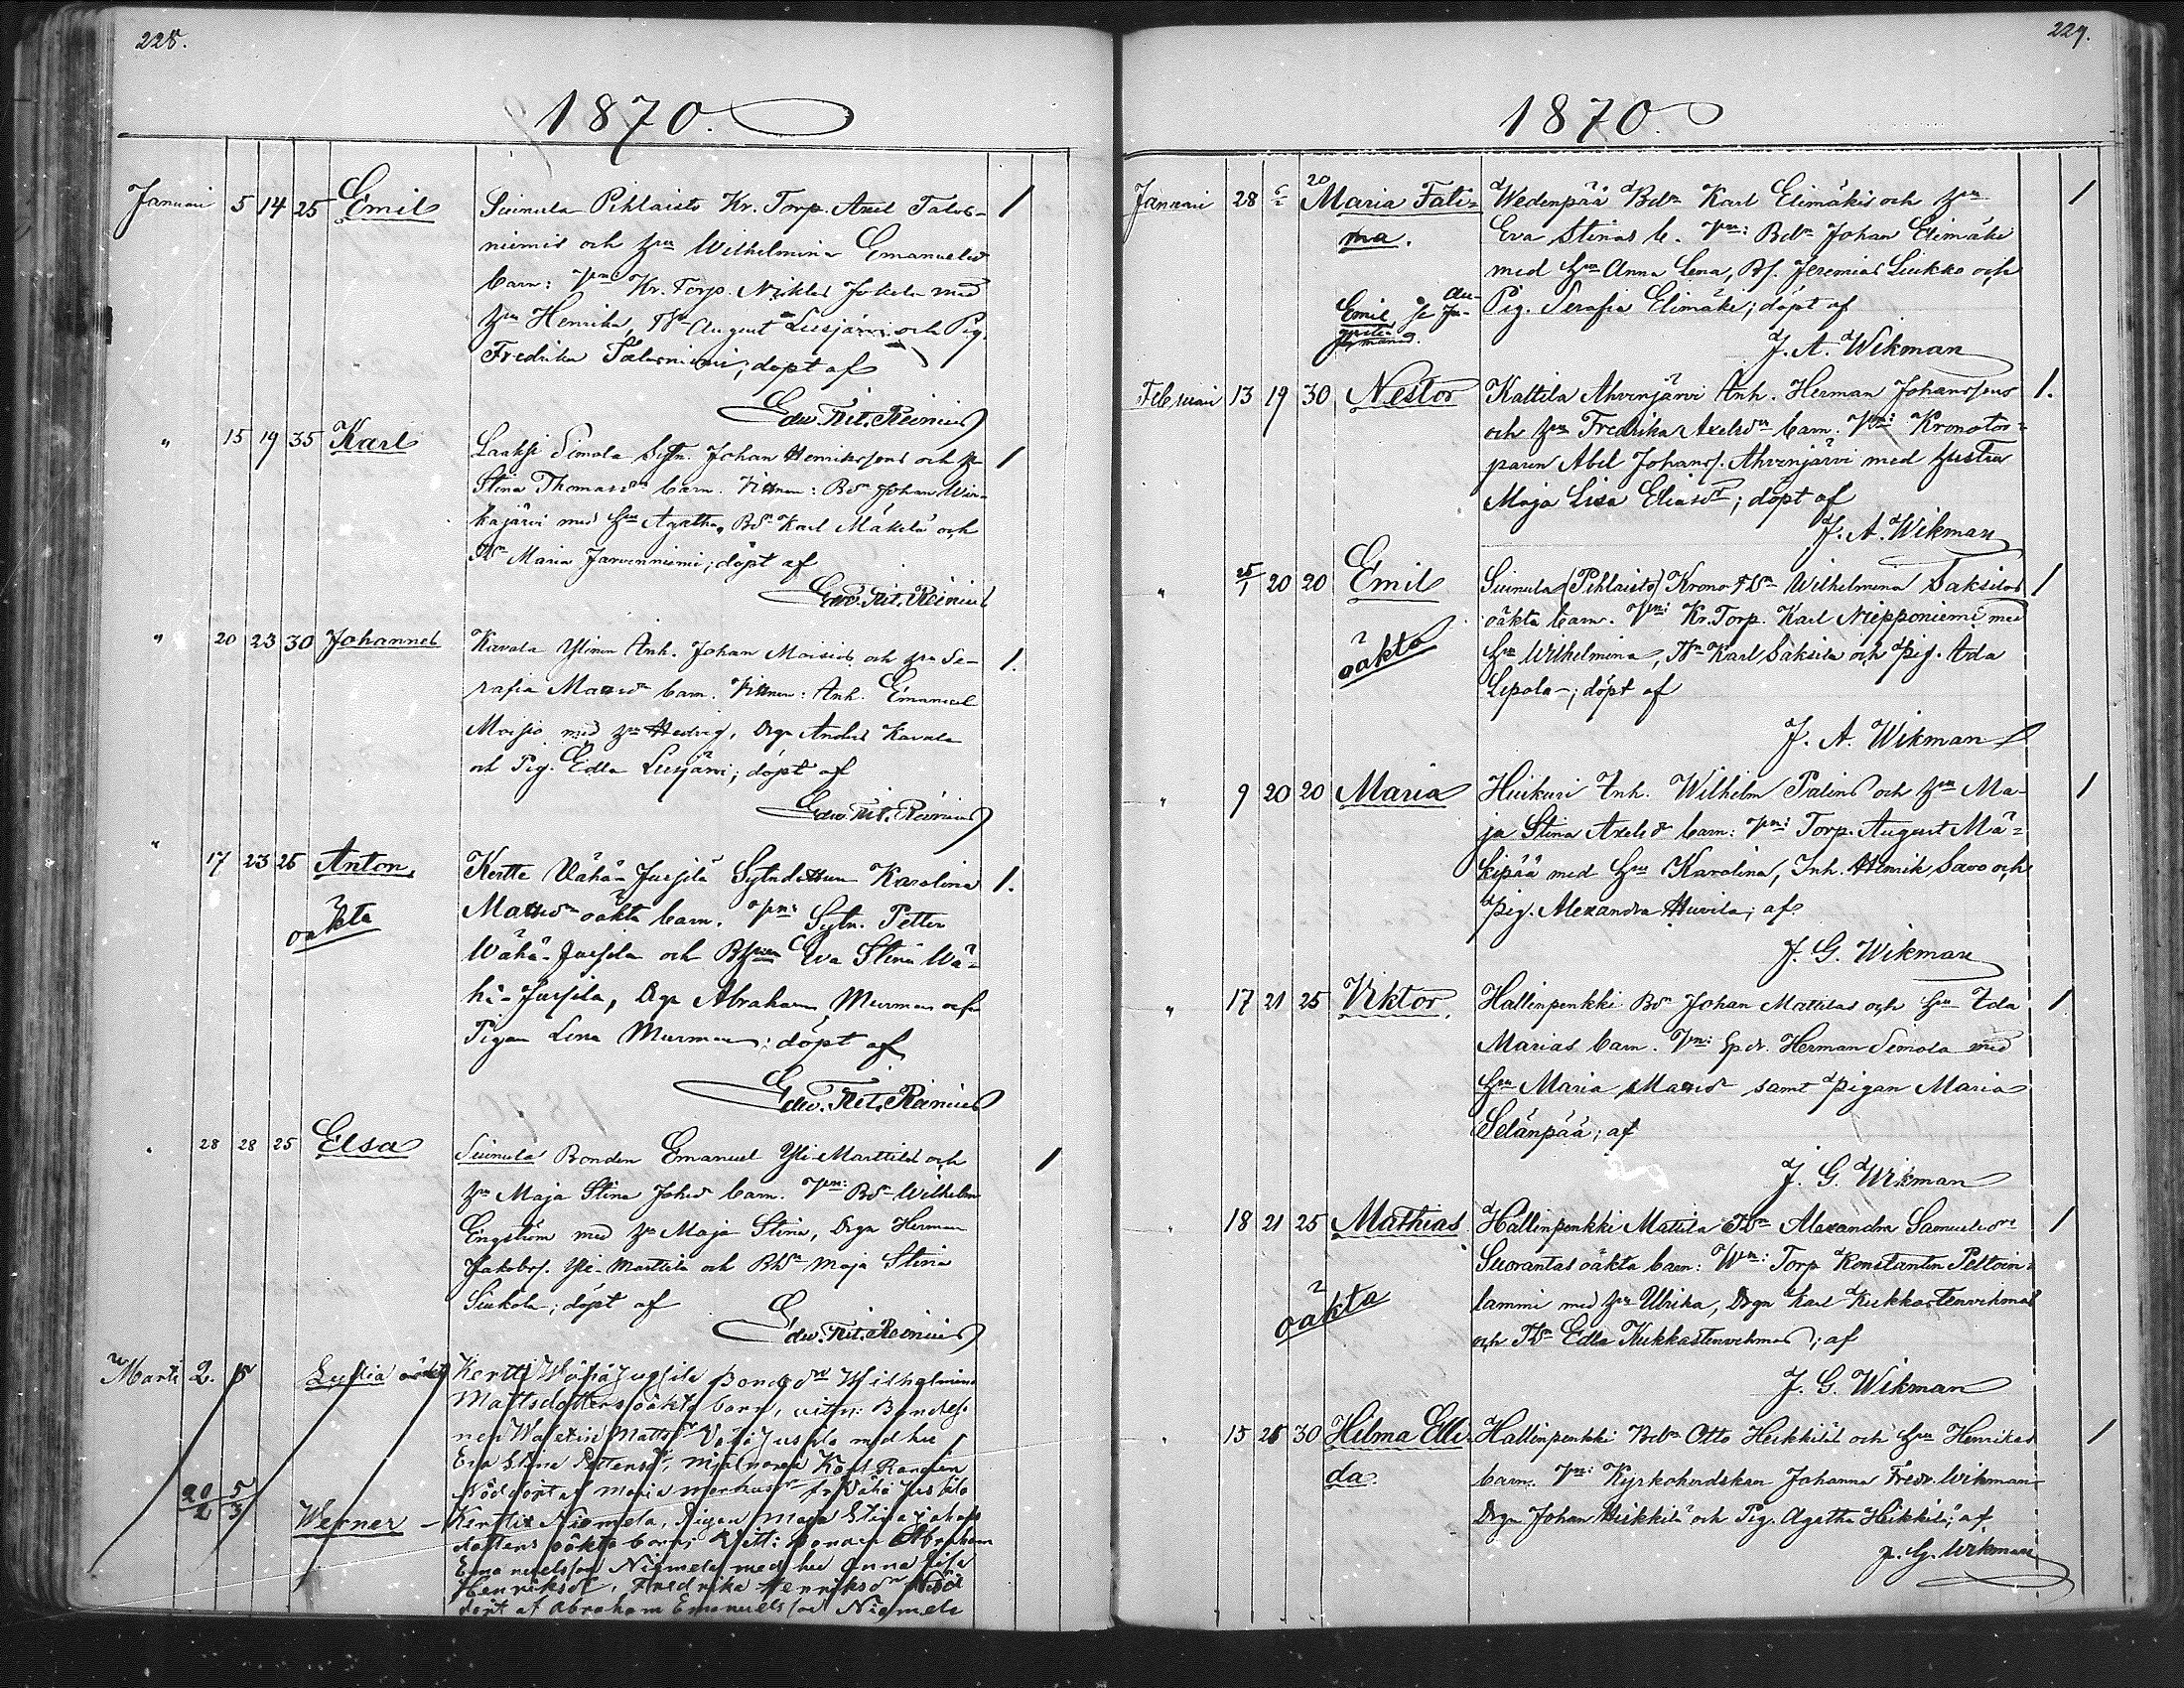 228.
1870.
Januari 5 14 25 Emil Suinula Pihlaisto Kr. Torp. Axel Talus-
niemis och hu Wilhelmina Emanuelsd
barn: Vne Kr. Torp. Niklas Jokela med
hu Henrika, August Liesjärvi och Pig.
Fredrika Talusniemi; döpt af
Edv. Fr. Reinius
" 15 19 35 Karl Laaksi Simola Sytn. Johan Henrikssons och h
Stina Thomasdr barn. Vittnen: Bd Johan Win-
kajärvi med hu Agatha, Bd Karl Mäkelä och
Maria Jarvenniemi; döpt af
Edv. Fr. Reinius
" 20 23 30 Johannes Kavala Ylinen Inh. Johan Moisios och hu Se-
rafia Mattsdr barn. Vittnen: Inh. Emanuel
Moisio med hu Hedvig, Drgn Anders Kavala
och Pig. Edla Liesjärvi; döpt af
Edv. Fr. Reinius
" 17 23 25 Anton, Kertte Vähä-Jussila Karolina
oäkta Mattsdr oäkta barn. Vn: Sytn. Petter
Wähä-Jussila och Eva Stina Wä-
hä-Jussila, Drgn Abraham Murman och
Pigan Lena Murman; döpt af
Edv. Fr. Reinius
28 28 25 Elsa Suinula Bonden Emanuel Yli-Marttila och
hu Maja Stina Johsdr barn. Vn: Bd Wilhelm
Engström med hu Maja Stina, Drgn Herman
Jakobs. Yli-Marttila och Maja Stina
Siukola; döpt af
Edv. Fr. Reinius
Marti 2. 5 Lydia oäkta Kertti Wähä Jussila Bonded Wilhelmina
Mattsdotters oäkta barn, vittn: Bondeso
nen Mattss Vähä Jussila med hu
Eva Stina Pettersdr,
Nöddöpt af Maria
20/2 5/3 Werner - Kertti Niemela, Pigan Maja Stina Johans
dotters oäkta barn; Vitt: Bonden Abraham
Emanuelsson Niemela med hu Anna Lisa
Henriksdr, Fredrika Henriksdr Nöd
döpt af Abraham Emanuelsson Niemela
229.
1870.
Januari 28 20 Maria Fati- Wedenpää Bdn Karl Elimäkis och hu
ma. Eva Stinas b. Vn: Bdn Johan Elimäki
med hu Anna Lena, Bs. Jeremias Liukko och
Emil Pig. Serafia Elimäki; döpt af
J. A. Wikman
Februari 13 19 30 Nestor Kaltila Ahvenjärvi Inh. Herman Johanssons
och hu Fredrika Axelsdr barn. Vn: Kronotor-
paren Abel Johanss. Ahvenjärvi med hustru
Maja Lisa Eliasdr; döpt af
J. A. Wikman
" 25/1 20 20 Emil Suinula (Pihlaisto) Krono Wilhelmina Saksilas
oäkta oäkta barn. Vn: Kr. Torp. Karl Niepponiemi med
hu Wilhelmina, Karl Saksila och pig. Ida
Lepola; döpt af
J. A. Wikman
" 9 20 20 Maria Hiukuri Inh. Wilhelm Palins och hu Ma-
ja Stina Axelsdr barn: Vn: Torp. August Mä-
kipää med hu Karolina, Inh. Henrik Savo och
pig. Alexandra Huvila; af
J. G. Wikman
" 17 21 25 Viktor. Hallinpenkki Bdn Johan Mattilas och hu Ida
Marias barn. Vn: Herman Simola med
hu Maria Mattsdr samt pigan Maria
Selänpää; af
J. G. Wikman
18 21 25 Mathias Hallinpenkki Mattila Alexandra Samuelsdrs
Suorantas oäkta barn: Vn: Torp Konstantin Peltoin-
oäkta lammi med hu Ulrika, Drgn Karl Kukkostenvehmas
och Edla Kukkastenvehmas; af
J. G. Wikman
15 26 30 Hilma Elli- Hallinpenkki Bdn Otto Heikkiläs och hu Henrikas
da. barn. Vn: Kyrkoherdskan Johanna Fredr. Wikman
Drgn Johan Heikkilä och Pig. Agatha Heikkilä; af
J. G. Wikman